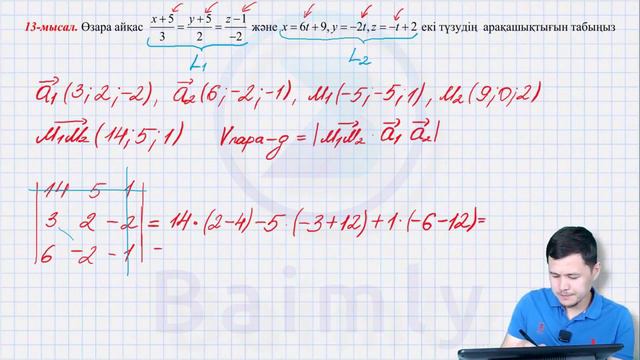 13-мысал. Өзара айқас (x+5)/3 = (y+5)/2 = (z−1)/−2 және x = 6t + 9, y = −2t, z = −t + 2 екі түзудің арақашықтығын табыңыз
L₁ L₂
a⃗₁(3; 2; −2), a⃗₂(6; −2; −1), M₁(−5; −5; 1), M₂(9; 0; 2)
M₁M₂(14; 5; 1) Vпара-д = |M₁M₂ · a⃗₁ a⃗₂|
14 5 1
3 2 −2 = 14·(2−4)−5·(−3+12)+1·(−6−12)=
6 −2 −1 =